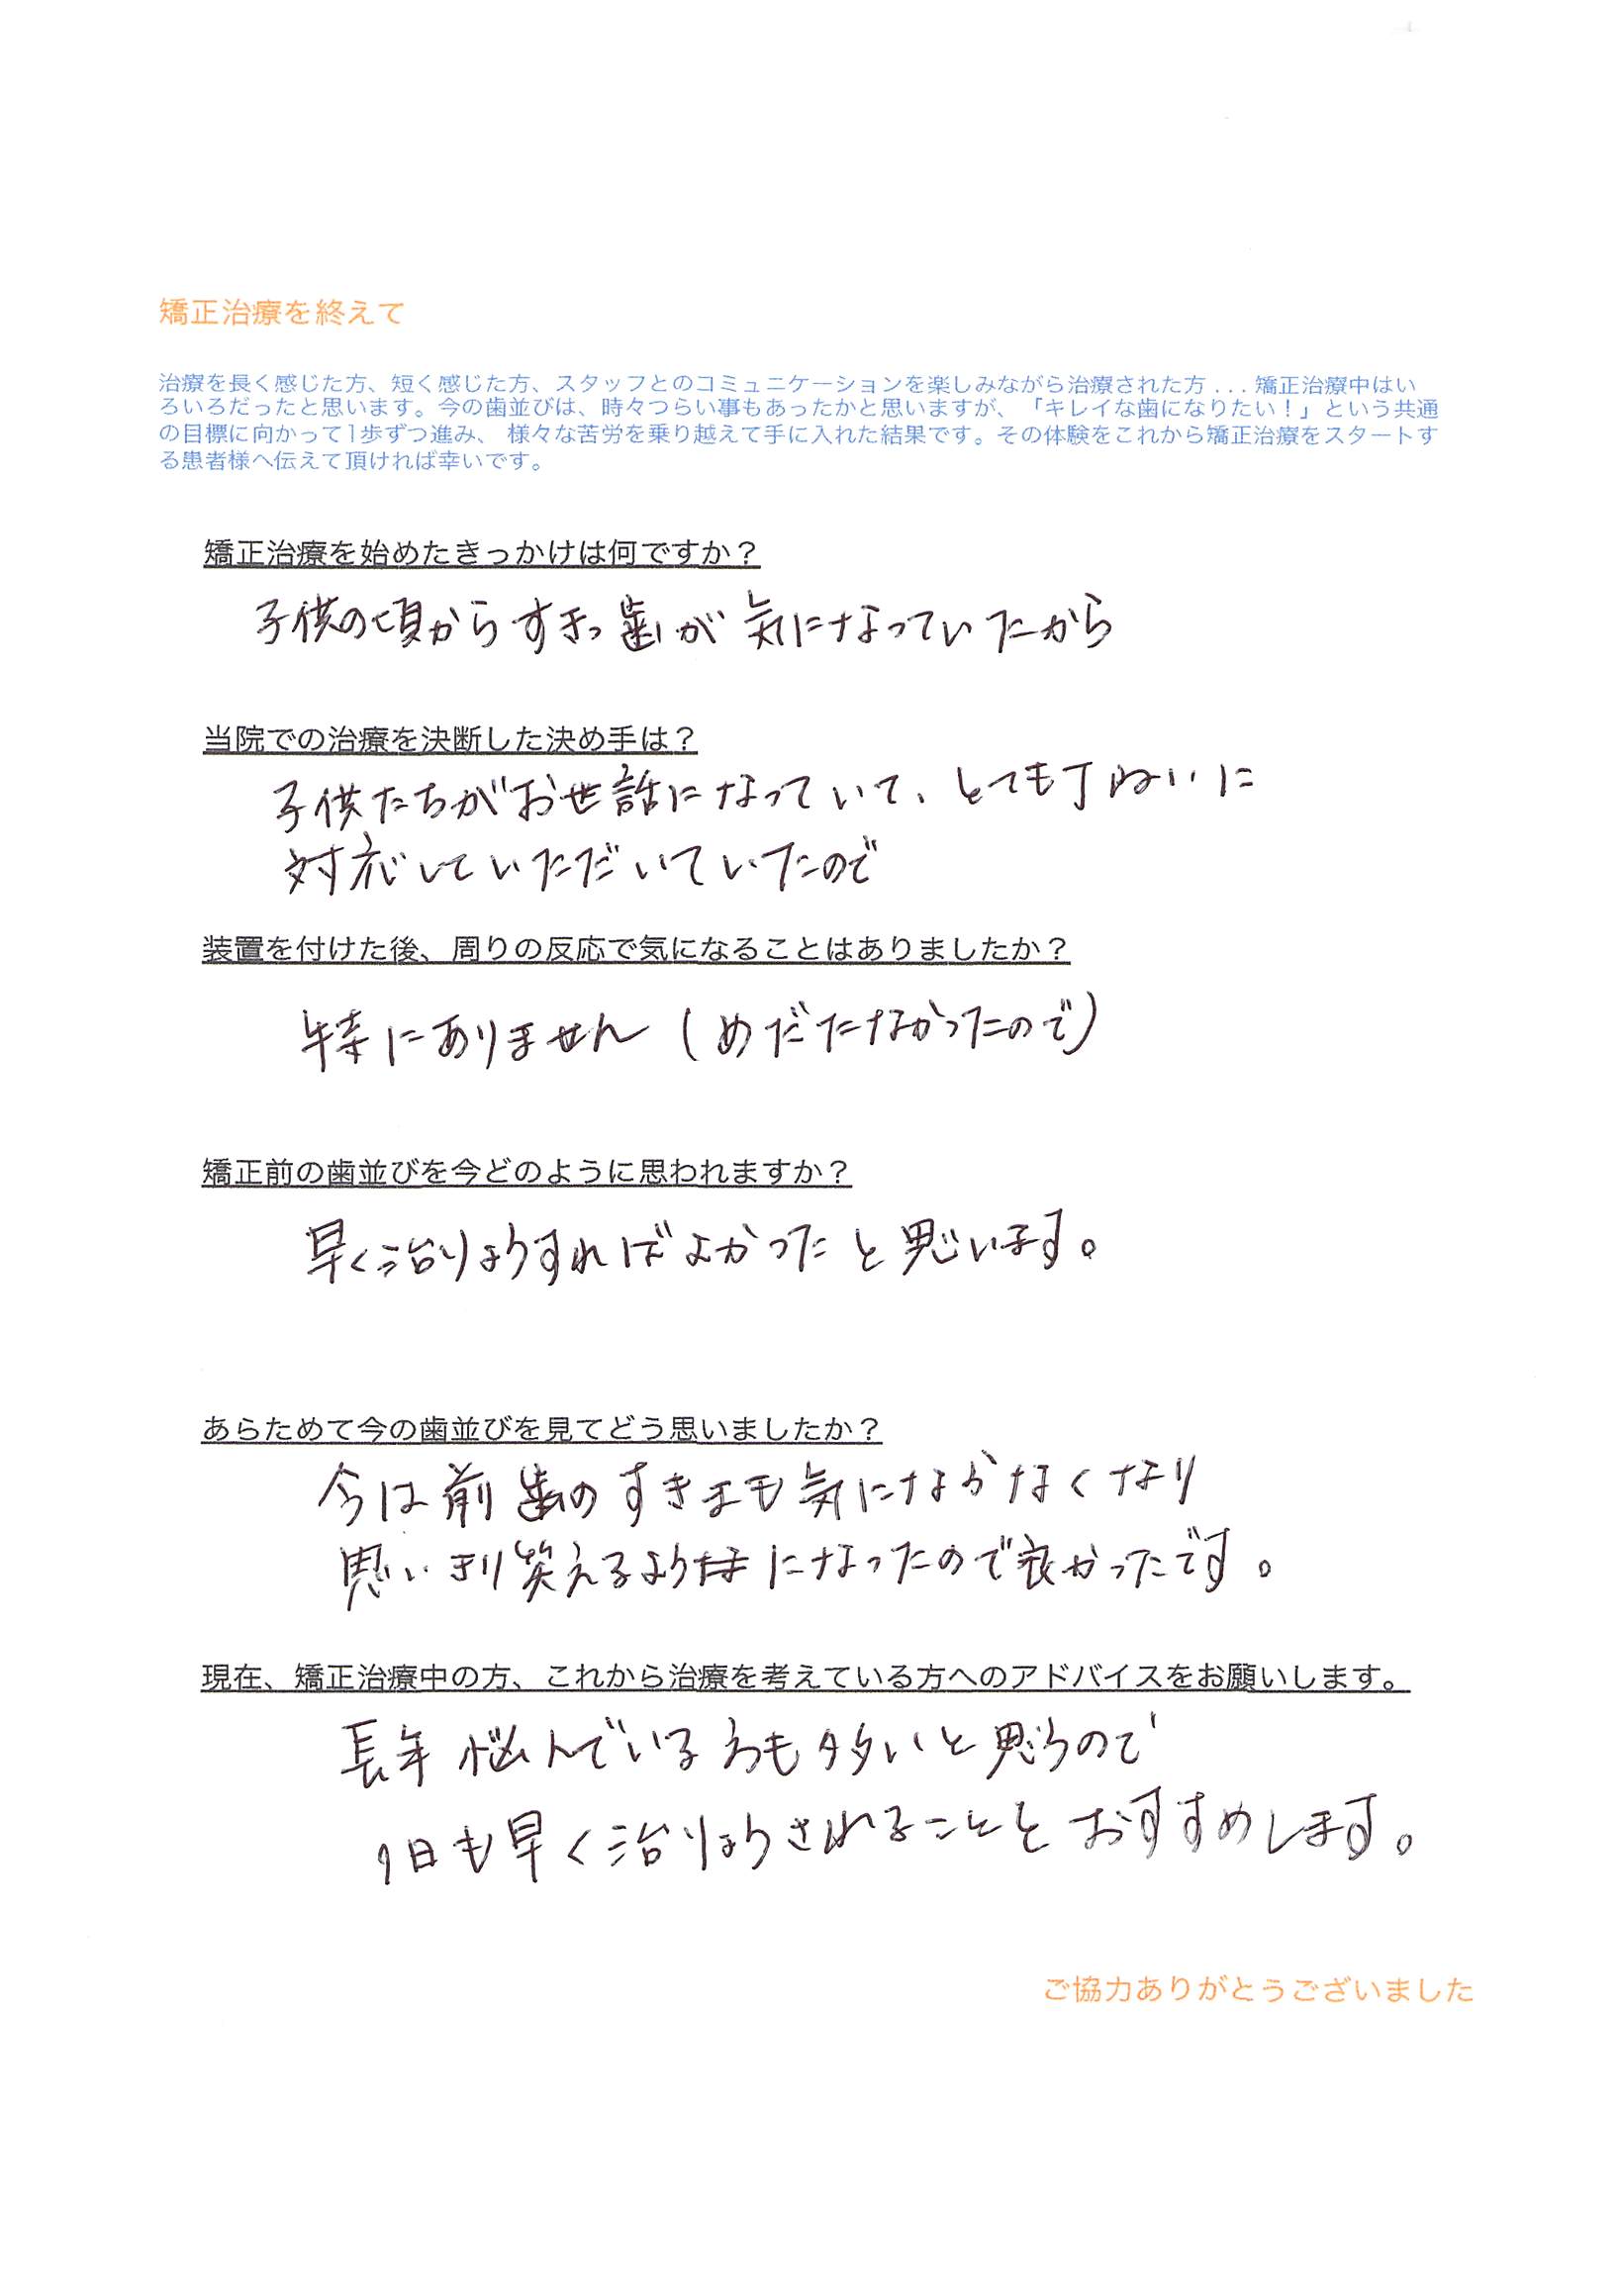 矯正治療を終えて
治療を長く感じた方、短く感じた方、スタッフとのコミュニケーションを楽しみながら治療された方...矯正治療中はい
ろいろだったと思います。今の歯並びは、時々つらい事もあったかと思いますが、「キレイな歯になりたい！」という共通
の目標に向かって1歩ずつ進み、 様々な苦労を乗り越えて手に入れた結果です。その体験をこれから矯正治療をスタートす
る患者様へ伝えて頂ければ幸いです。
矯正治療を始めたきっかけは何ですか？
子供の頃からすきっ歯が気になっていたから
当院での治療を決断した決め手は？
子供たちがお世話になっていて、とても丁ねいに
対応していただいていたので
装置を付けた後、周りの反応で気になることはありましたか？
特にありません（めだたなかったので）
矯正前の歯並びを今どのように思われますか？
早く治りょうすればよかったと思います。
あらためて今の歯並びを見てどう思いましたか？
今は前歯のすきまも気になからなくなり
思いきり笑えるようになったので良かったです。
現在、矯正治療中の方、これから治療を考えている方へのアドバイスをお願いします。
長年悩んでいる方も多いと思うので
1日も早く治りょうされることをおすすめします。
ご協力ありがとうございました